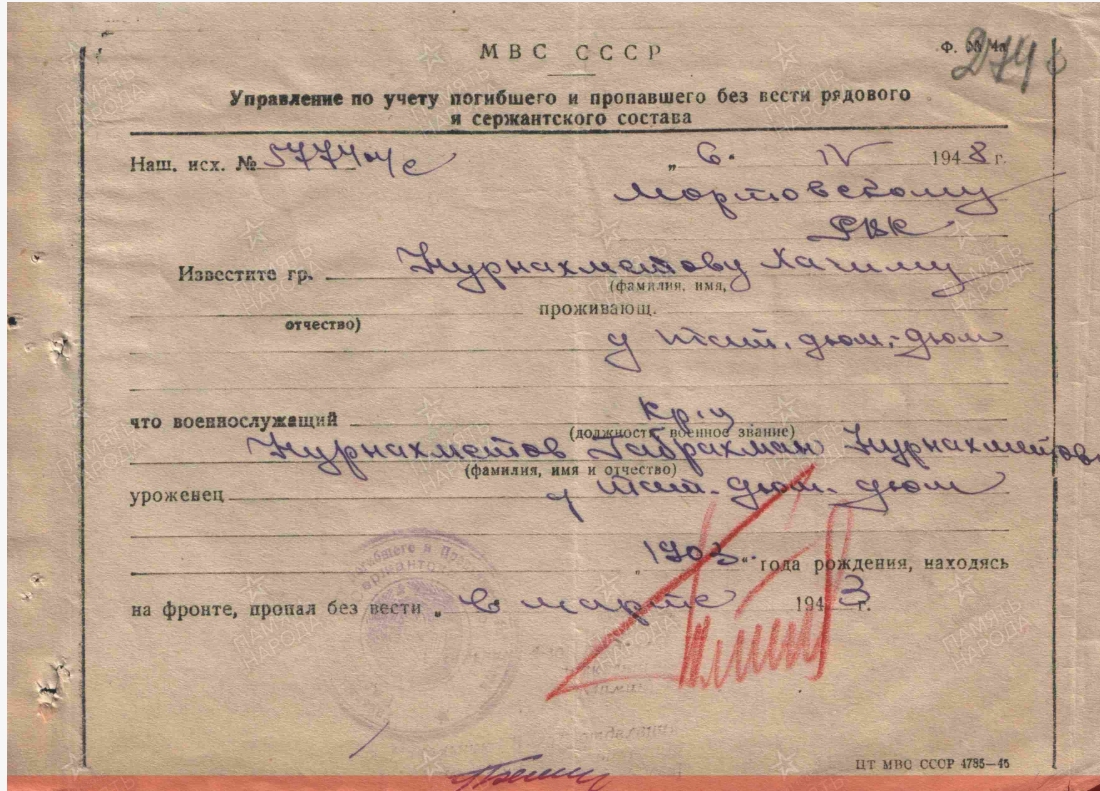 МВС СССР
Ф. № 4а
274
Управление по учету погибшего и пропавшего без вести рядового
и сержантского состава
Наш. исх. № 57744/с „ 6. IV 1948 г.
Мортовскому
РВК
Известите гр. Нурнахметову Хачиму
(фамилия, имя,
отчество) проживающ.
д тат. дюм-дюм
что военнослужащий кр-ц
(должность, военное звание)
Нурнахметов Габрахман Нурнахметов
(фамилия, имя и отчество)
уроженец д тат. дюм-дюм
„1903“ года рождения, находясь
на фронте, пропал без вести „ в марте 1943 г.
ЦТ МВС СССР 4785—45
ПАМЯТЬ НАРОДА